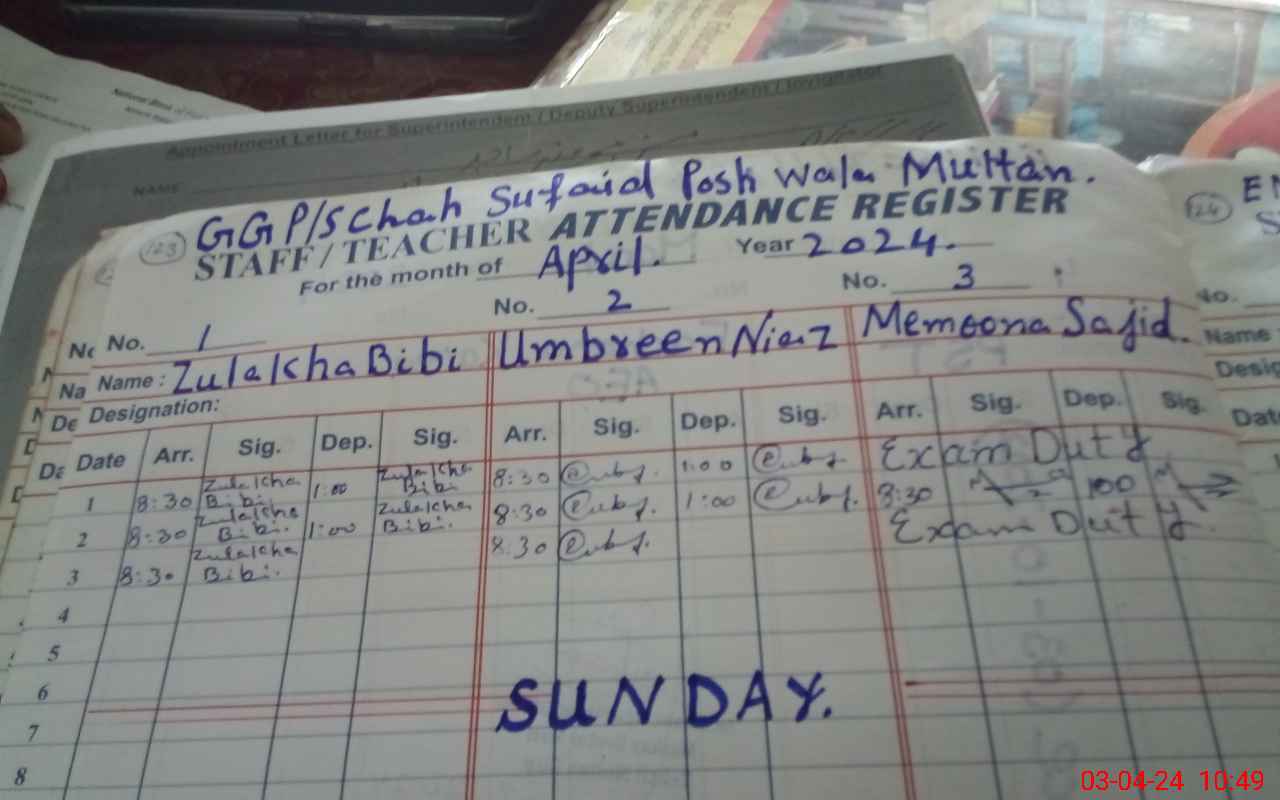 Appointment Letter for Superintendent / Deputy Superintendent / Invigilator
NAME
123
GGP/S Chah Sufaid Posh Wala Multan.
STAFF / TEACHER ATTENDANCE REGISTER
For the month of April. Year 2024.
No. 1 No. 2 No. 3
Name: Zulakha Bibi Umbreen Niaz Memoona Sajid.
Designation:
Date Arr. Sig. Dep. Sig. Arr. Sig. Dep. Sig. Arr. Sig. Dep. Sig.
1 8:30 Zulakha Bibi 1:00 Zulakha Bibi 8:30 1:00 Exam Duty
2 8:30 Zulakha Bibi. 1:00 Zulakha Bibi. 8:30 1:00 8:30 100
3 8:30 Zulakha Bibi. 8:30 Exam Duty.
4
5
6
7 SUNDAY.
8
124
No.
Name
03-04-24 10:49